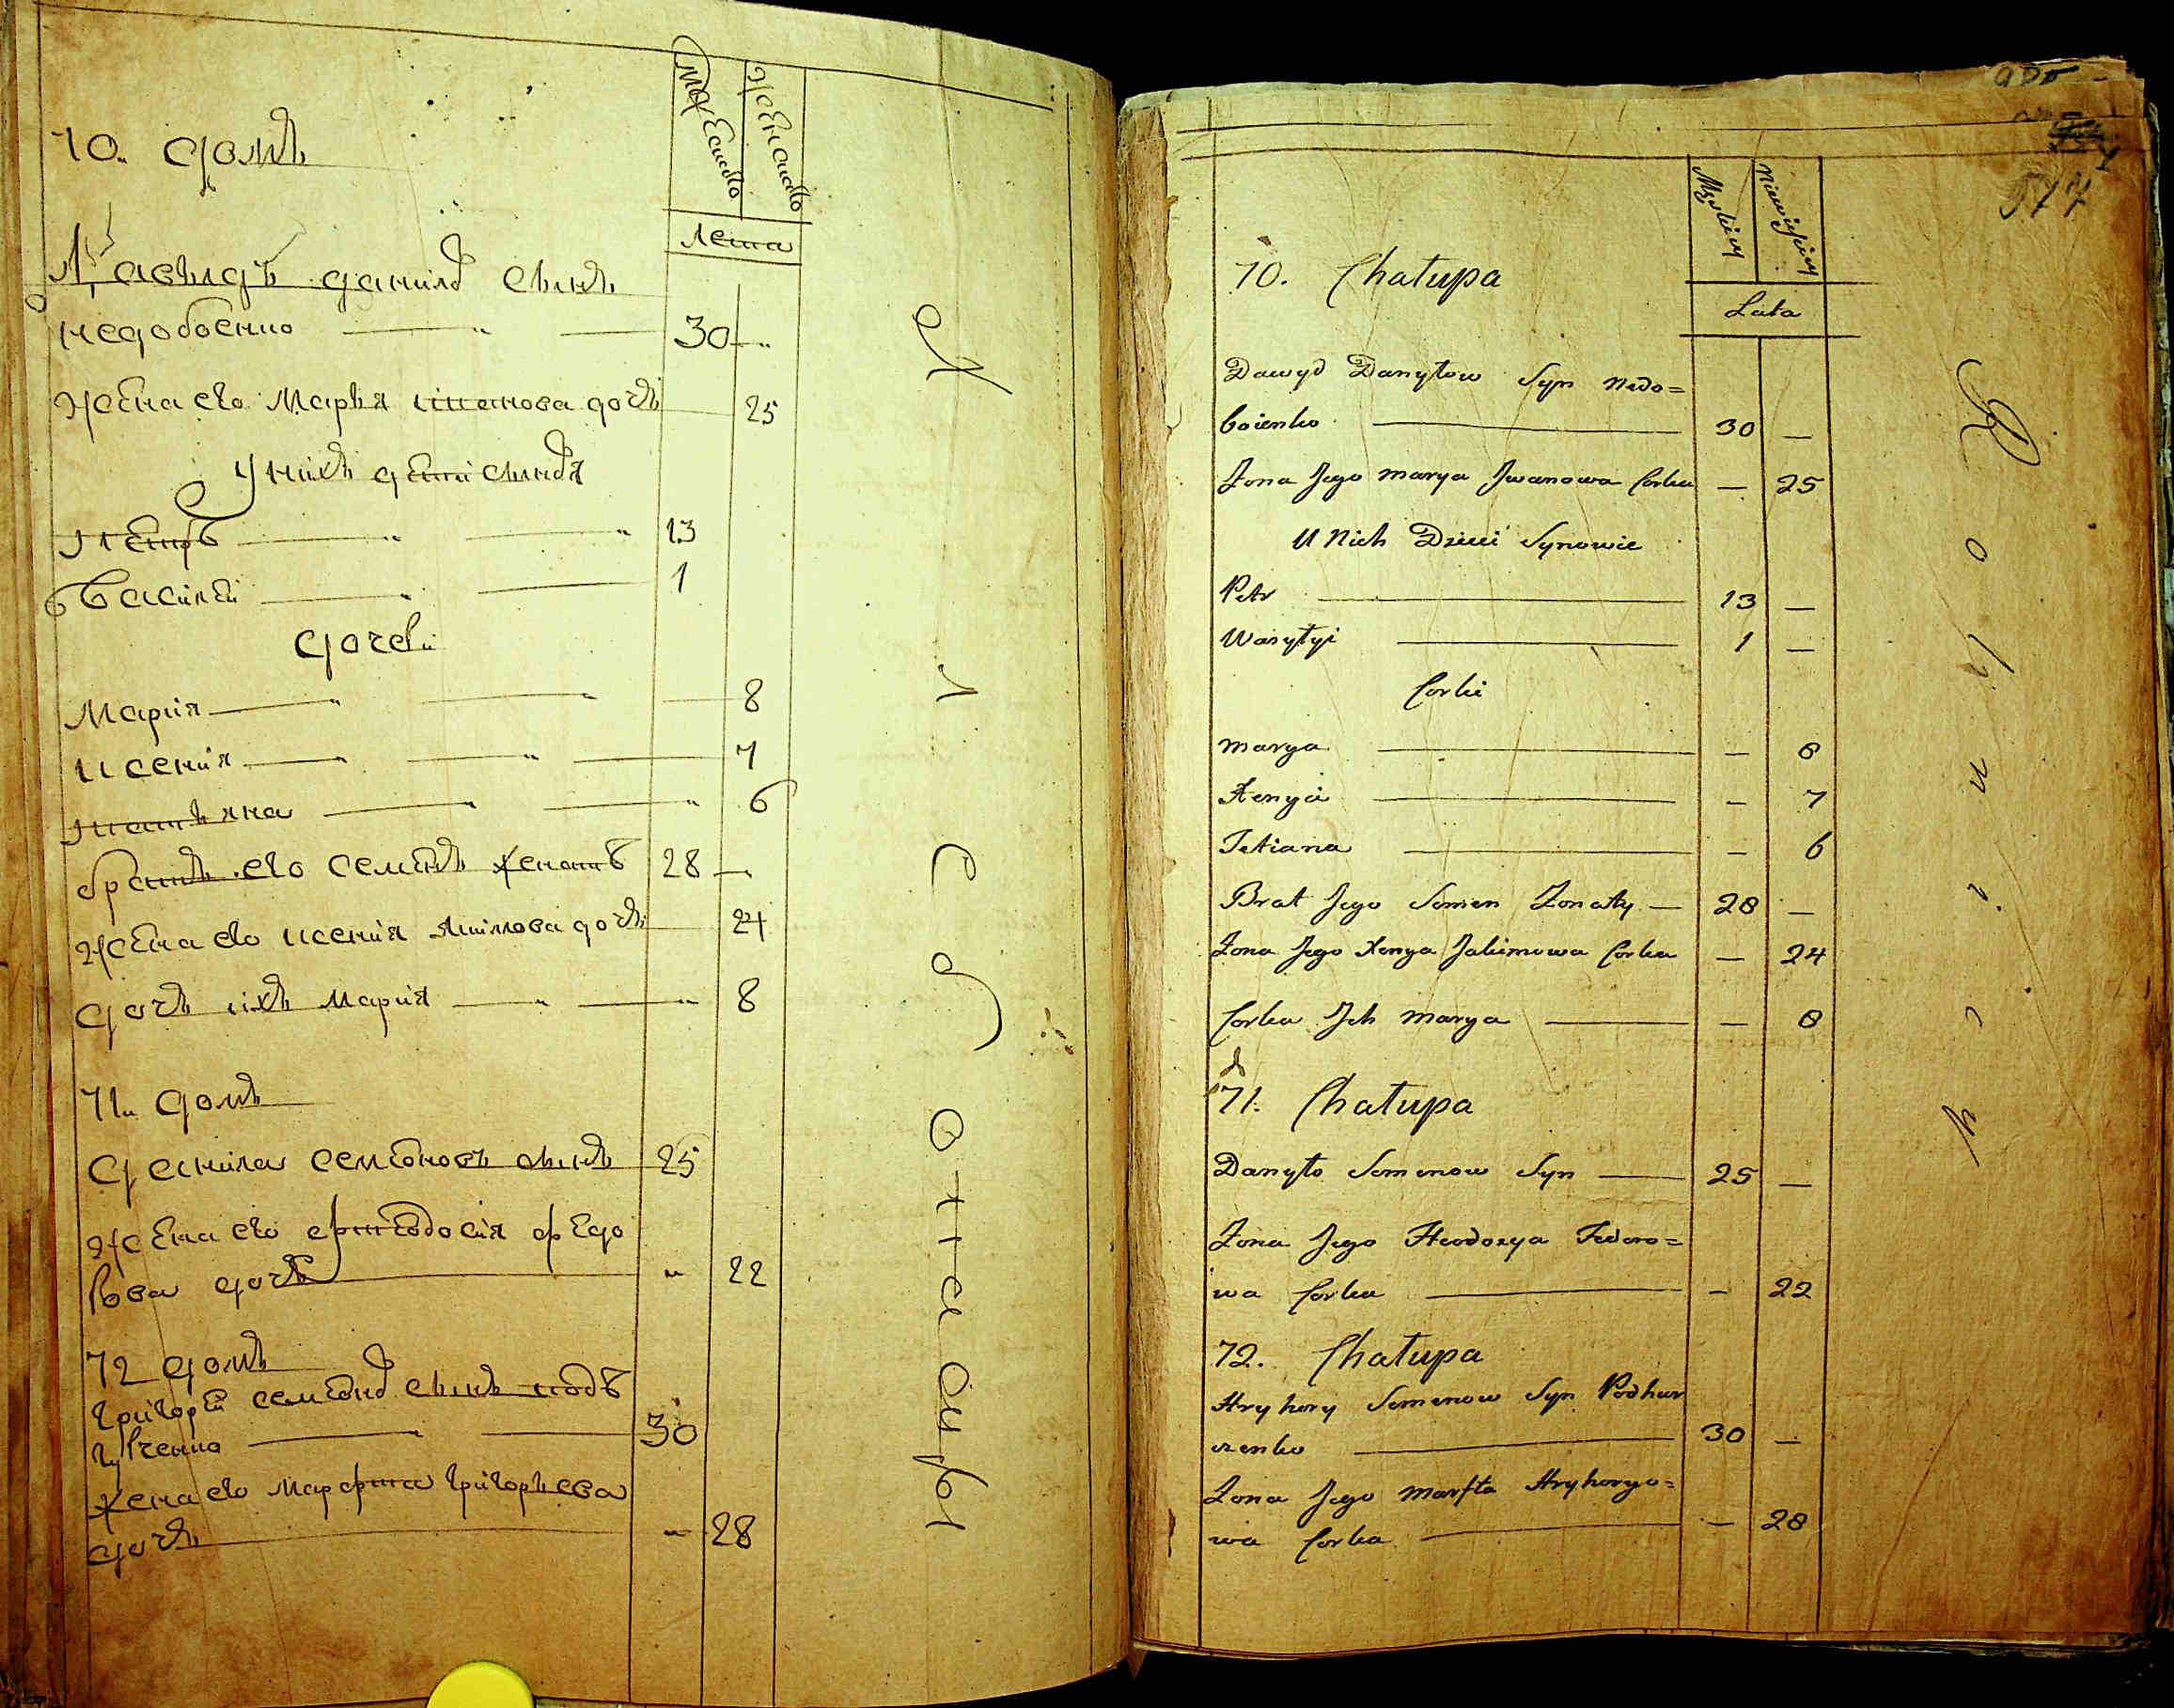 70. домъ
мужеска
женска
лета
Давыдъ данилов сынъ
недобоенко — " — 30 — "
жена его Марья иванова дочь — 25
У нихъ дети сыновя
Петръ — " — " 13
Василей — " — 1
дочери
Мария — " — " — 8
Ксения — " — " — 7
татьяна — " — " 6
братъ его семенъ женатъ 28 —
жена его ксения якимова дочь — 24
дочь ихъ Мария — " — " 8
71. домъ
Данила семеновъ сынъ 25
жена его фтеодосия федо
рова дочь — " 22
72 домъ
григорей семенов сынъ подъ
гурченко — — 30
жена его марфта григорьева
дочь — " 28
577
Męskiey
Niewieskiey
Lata
70. Chałupa
Dawyd Danyłow Syn Nedo=
boienko — 30 —
Zona Jego Marya Jwanowa Corka — 25
U Nich Dzieci Synowie
Petr — 13 —
Wasyłyi — 1 —
Corki
Marya — — 8
Xenya — — 7
Tetiana — — 6
Brat Jego Semen Zonaty — 28 —
Zona Jego Xenya Jakimowa Corka — 24
Corka Jch Marya — — 8
71. Chałupa
Danyło Semenow Syn — 25 —
Zona Jego Fteodosya Fedoro=
wa Corka — — 22
72. Chałupa
Hryhory Semenow Syn Podhur
czenko — 30 —
Zona Jego Marfta Hryhoryo=
wa Corka — — 28